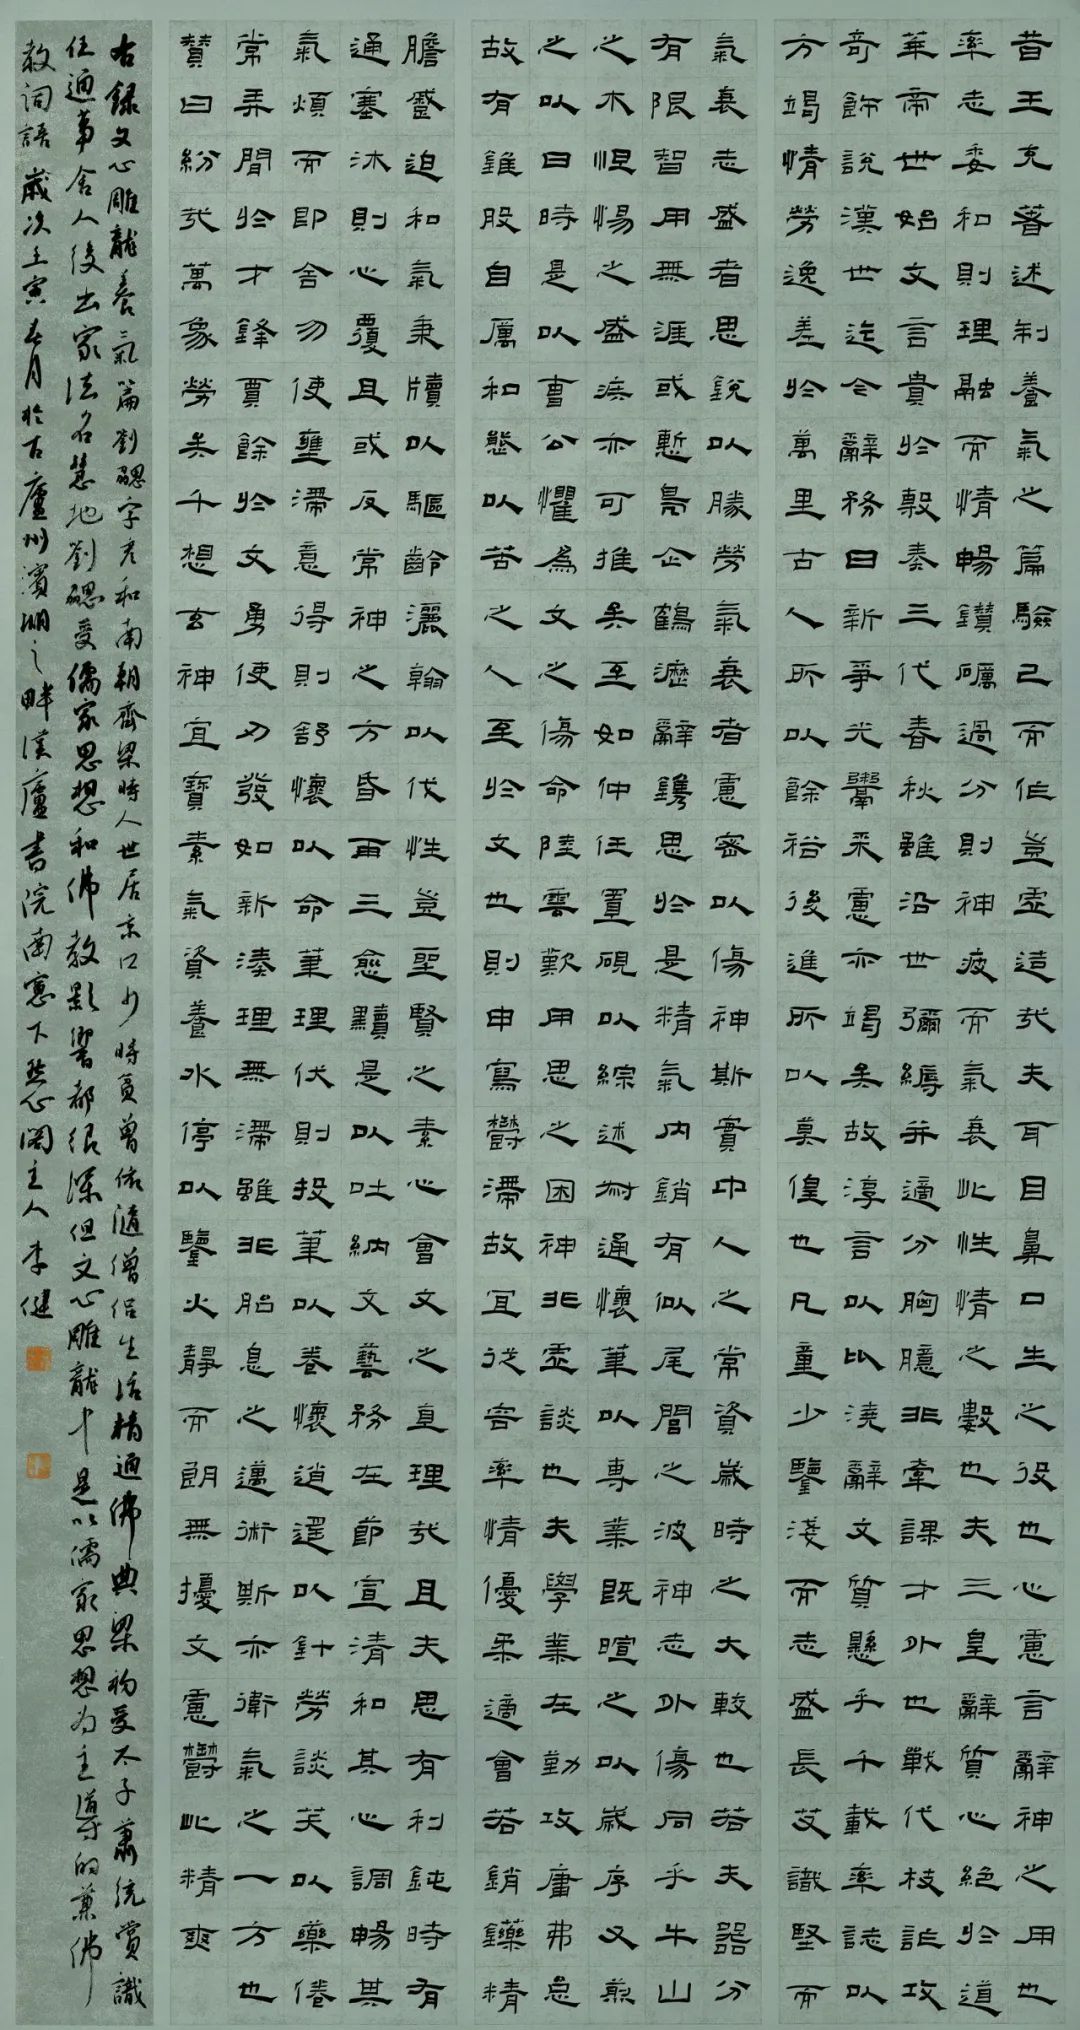 昔王充著述制養氣之篇驗己而作豈虛造哉夫耳目鼻口生之役也心慮言辭神之用也
率志委和則理融而情暢鑽礪過分則神疲而氣衰此性情之數也夫三皇辭質心絕於道
華帝世始文言貴於敷奏三代春秋雖沿世彌縟并適分胸臆非牽課才外也戰代枝詐攻
奇飾說漢世迄今辭務日新爭光鬻采慮亦竭矣故淳言以比澆辭文質懸乎千載率誌以
方竭情勞逸差於萬里古人所以餘裕後進所以莫偟也凡童少鑒淺而志盛長艾識堅而
氣衰志盛者思銳以勝勞氣衰者慮密以傷神斯實中人之常資歲時之大較也若夫器分
有限智用無涯或慙鳧企鶴瀝辭鐫思於是精氣內銷有似尾閭之波神志外傷同乎牛山
之木怛惕之盛疾亦可推矣至如仲任置硯以綜述叔通懷筆以專業既暄之以歲序又煎
之以日時是以曹公懼為文之傷命陸雲歎用思之困神非虛談也夫學業在勤攻庸弗怠
故有錐股自厲和熊以苦之人至於文也則申寫鬱滯故宜從容率情優柔適會若銷鑠精
膽蹙迫和氣秉牘以驅齡灑翰以伐性豈聖賢之素心會文之直理哉且夫思有利鈍時有
通塞沐則心覆且或反常神之方昏再三愈黷是以吐納文藝務在節宣清和其心調暢其
氣煩而即舍勿使壅滯意得則舒懷以命筆理伏則投筆以卷懷逍遙以針勞談笑以藥倦
常弄閒於才鋒賈餘於文勇使刃發如新湊理無滯雖非胎息之邁術斯亦衛氣之一方也
贊曰紛哉萬象勞矣千想玄神宜寶素氣資養水停以鑒火靜而朗無擾文慮鬱此精爽
右錄文心雕龍養氣篇劉勰字彥和南朝齊梁時人世居京口少時貧曾依隨僧侶生活精通佛典梁初受太子蕭統賞識
任通事舍人後出家法名慧地劉勰受儒家思想和佛教影響都很深但文心雕龍中是以儒家思想為主導的兼佛
教詞語歲次壬寅春月於古廬州濱湖之畔漢廬書院南窗下 心閣主人李健